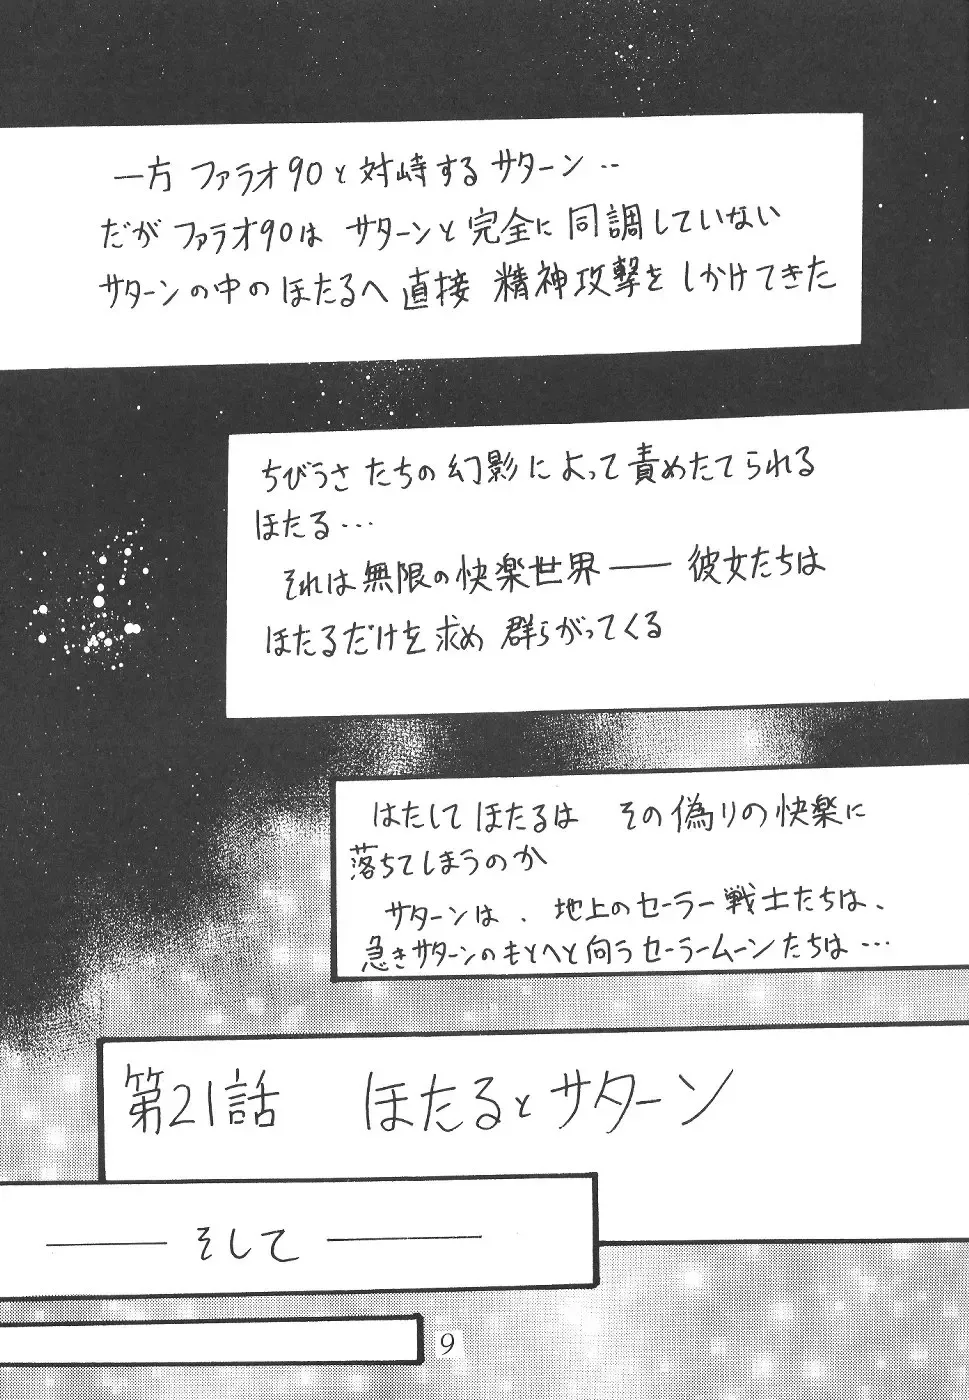 一方 ファラオ90と対峙するサターン‥
だがファラオ90は サターンと完全に同調していない
サターンの中のほたるへ直接 精神攻撃をしかけてきた
ちびうさたちの幻影によって責めたてられる
ほたる…
それは無限の快楽世界── 彼女たちは
ほたるだけを求め 群らがってくる
はたしてほたるは その偽りの快楽に
落ちてしまうのか
サターンは、地上のセーラー戦士たちは、
急きサターンのもとへと向うセーラームーンたちは…
第21話 ほたるとサターン
── そして ──
9